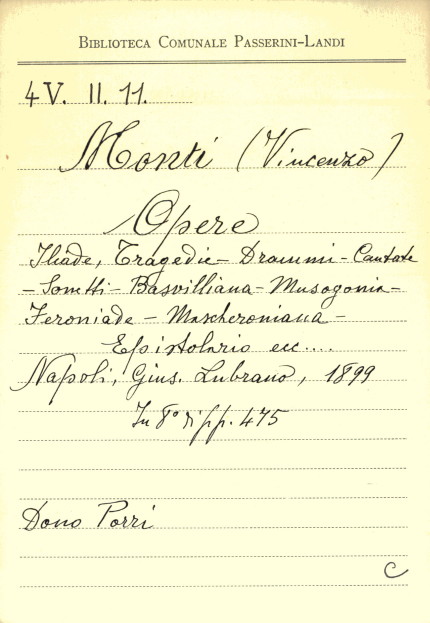 BIBLIOTECA COMUNALE PASSERINI-LANDI
4V. II. 11.
Monti (Vincenzo)
Opere
Iliade, Tragedie - Drammi - Cantate
- Sonetti - Basvilliana - Musogonia -
Feroniade - Mascheroniana -
Epistolario ecc....
Napoli, Gius. Lubrano, 1899
In 8° di pp. 475
Dono Porri
C